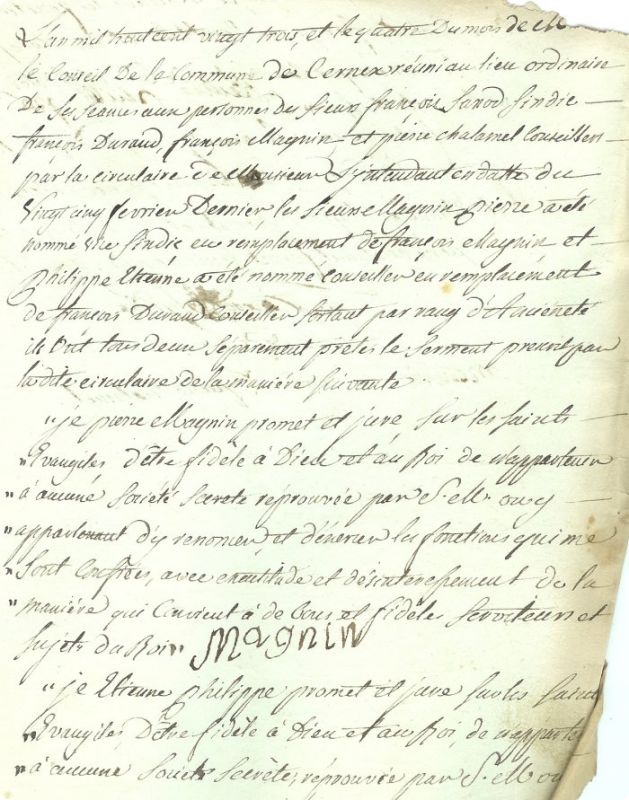 L'an mil huit cent vingt trois, et le quatre du mois de
le Conseil De la Commune de Cernex réuni au lieu ordinaire
De ses séances aux personnes des sieurs françois Sarod sindic
françois Durand, françois Magnin et pierre chalamel Conseillers
par la circulaire de Monsieur L'jntendant en datte du
Vingt cinq fevrier Dernier les sieurs Magnin pierre a été
nommé vice sindic en remplacement de françois Magnin et
philippe Etienne a été nommé Conseiller en remplacement
de françois Durand Conseiller sortant par rang d'Anciéneté
ils ont tous deux séparement prétés le serment prescrit par
la dite circulaire de la maniére suivante
"je pierre Magnin promet et jure sur les saints
"Evangiles d'être fidéle à Dieu et au Roi de n'appartenir
"à aucune société secrete réprouvée par S. M. ou y
"appartenant d'y renoncer, et d'éxercer les fonctions qui me
"sont Confiées, avec exactitude et désinteressement de la
"maniére qui Convient à de bons et fidéles serviteurs et
sujets du Roi" Magnin
"je Etienne philippe promet et jure sur les saints
"Evangiles, D'être fidéle à Dieu et au Roi, de n'apparte
"à aucune société secrète, réprouvée par S. M. ou